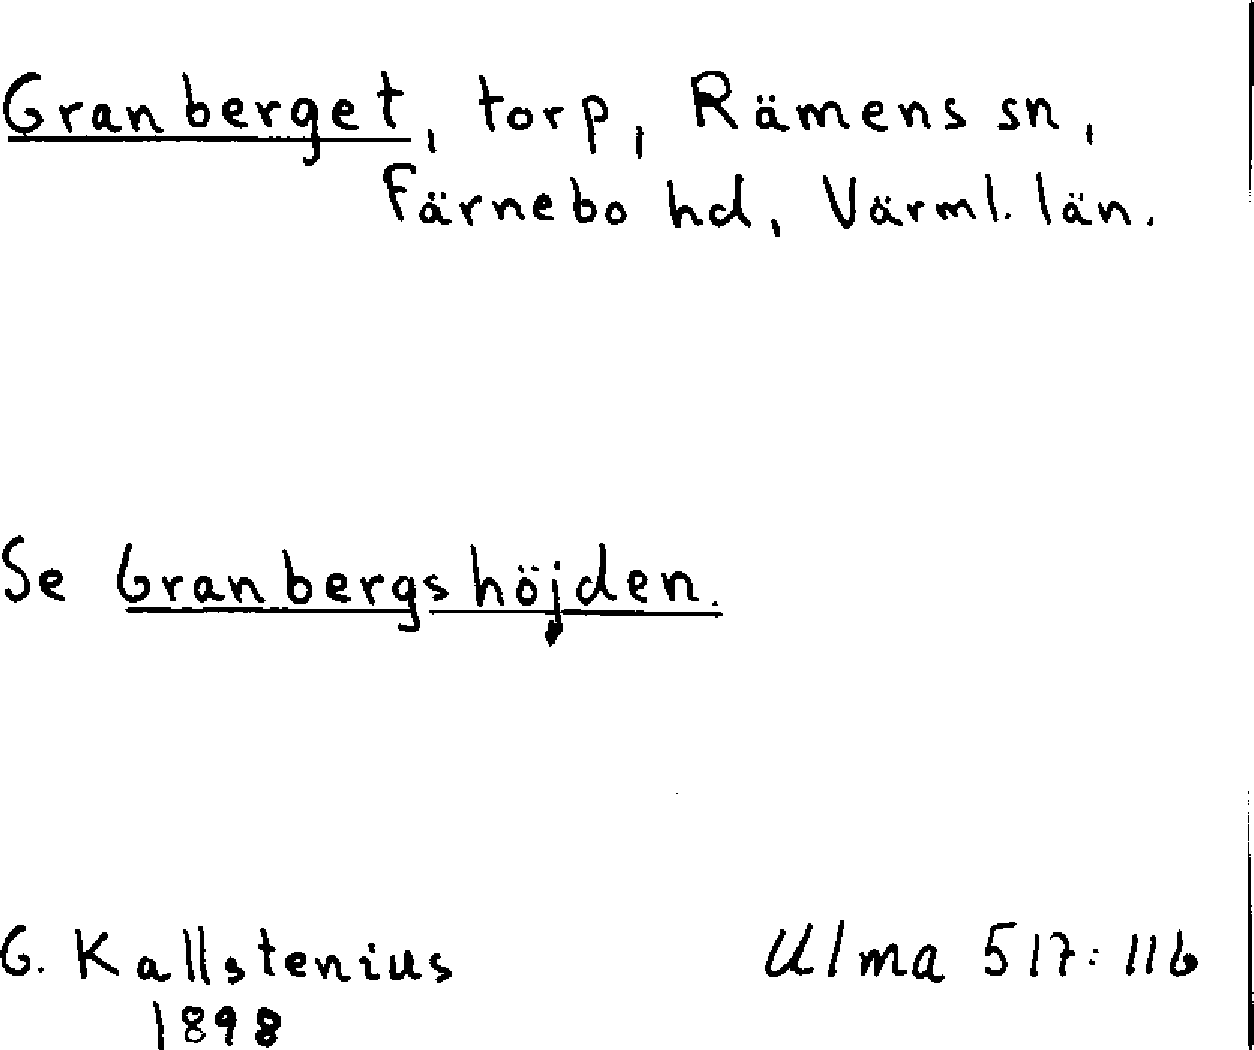 Granberget, torp, Rämens sn,
Färnebo hd, Värml. län.
Se Granbergshöjden.
G. Kallstenius
1898
Ulma 517:116